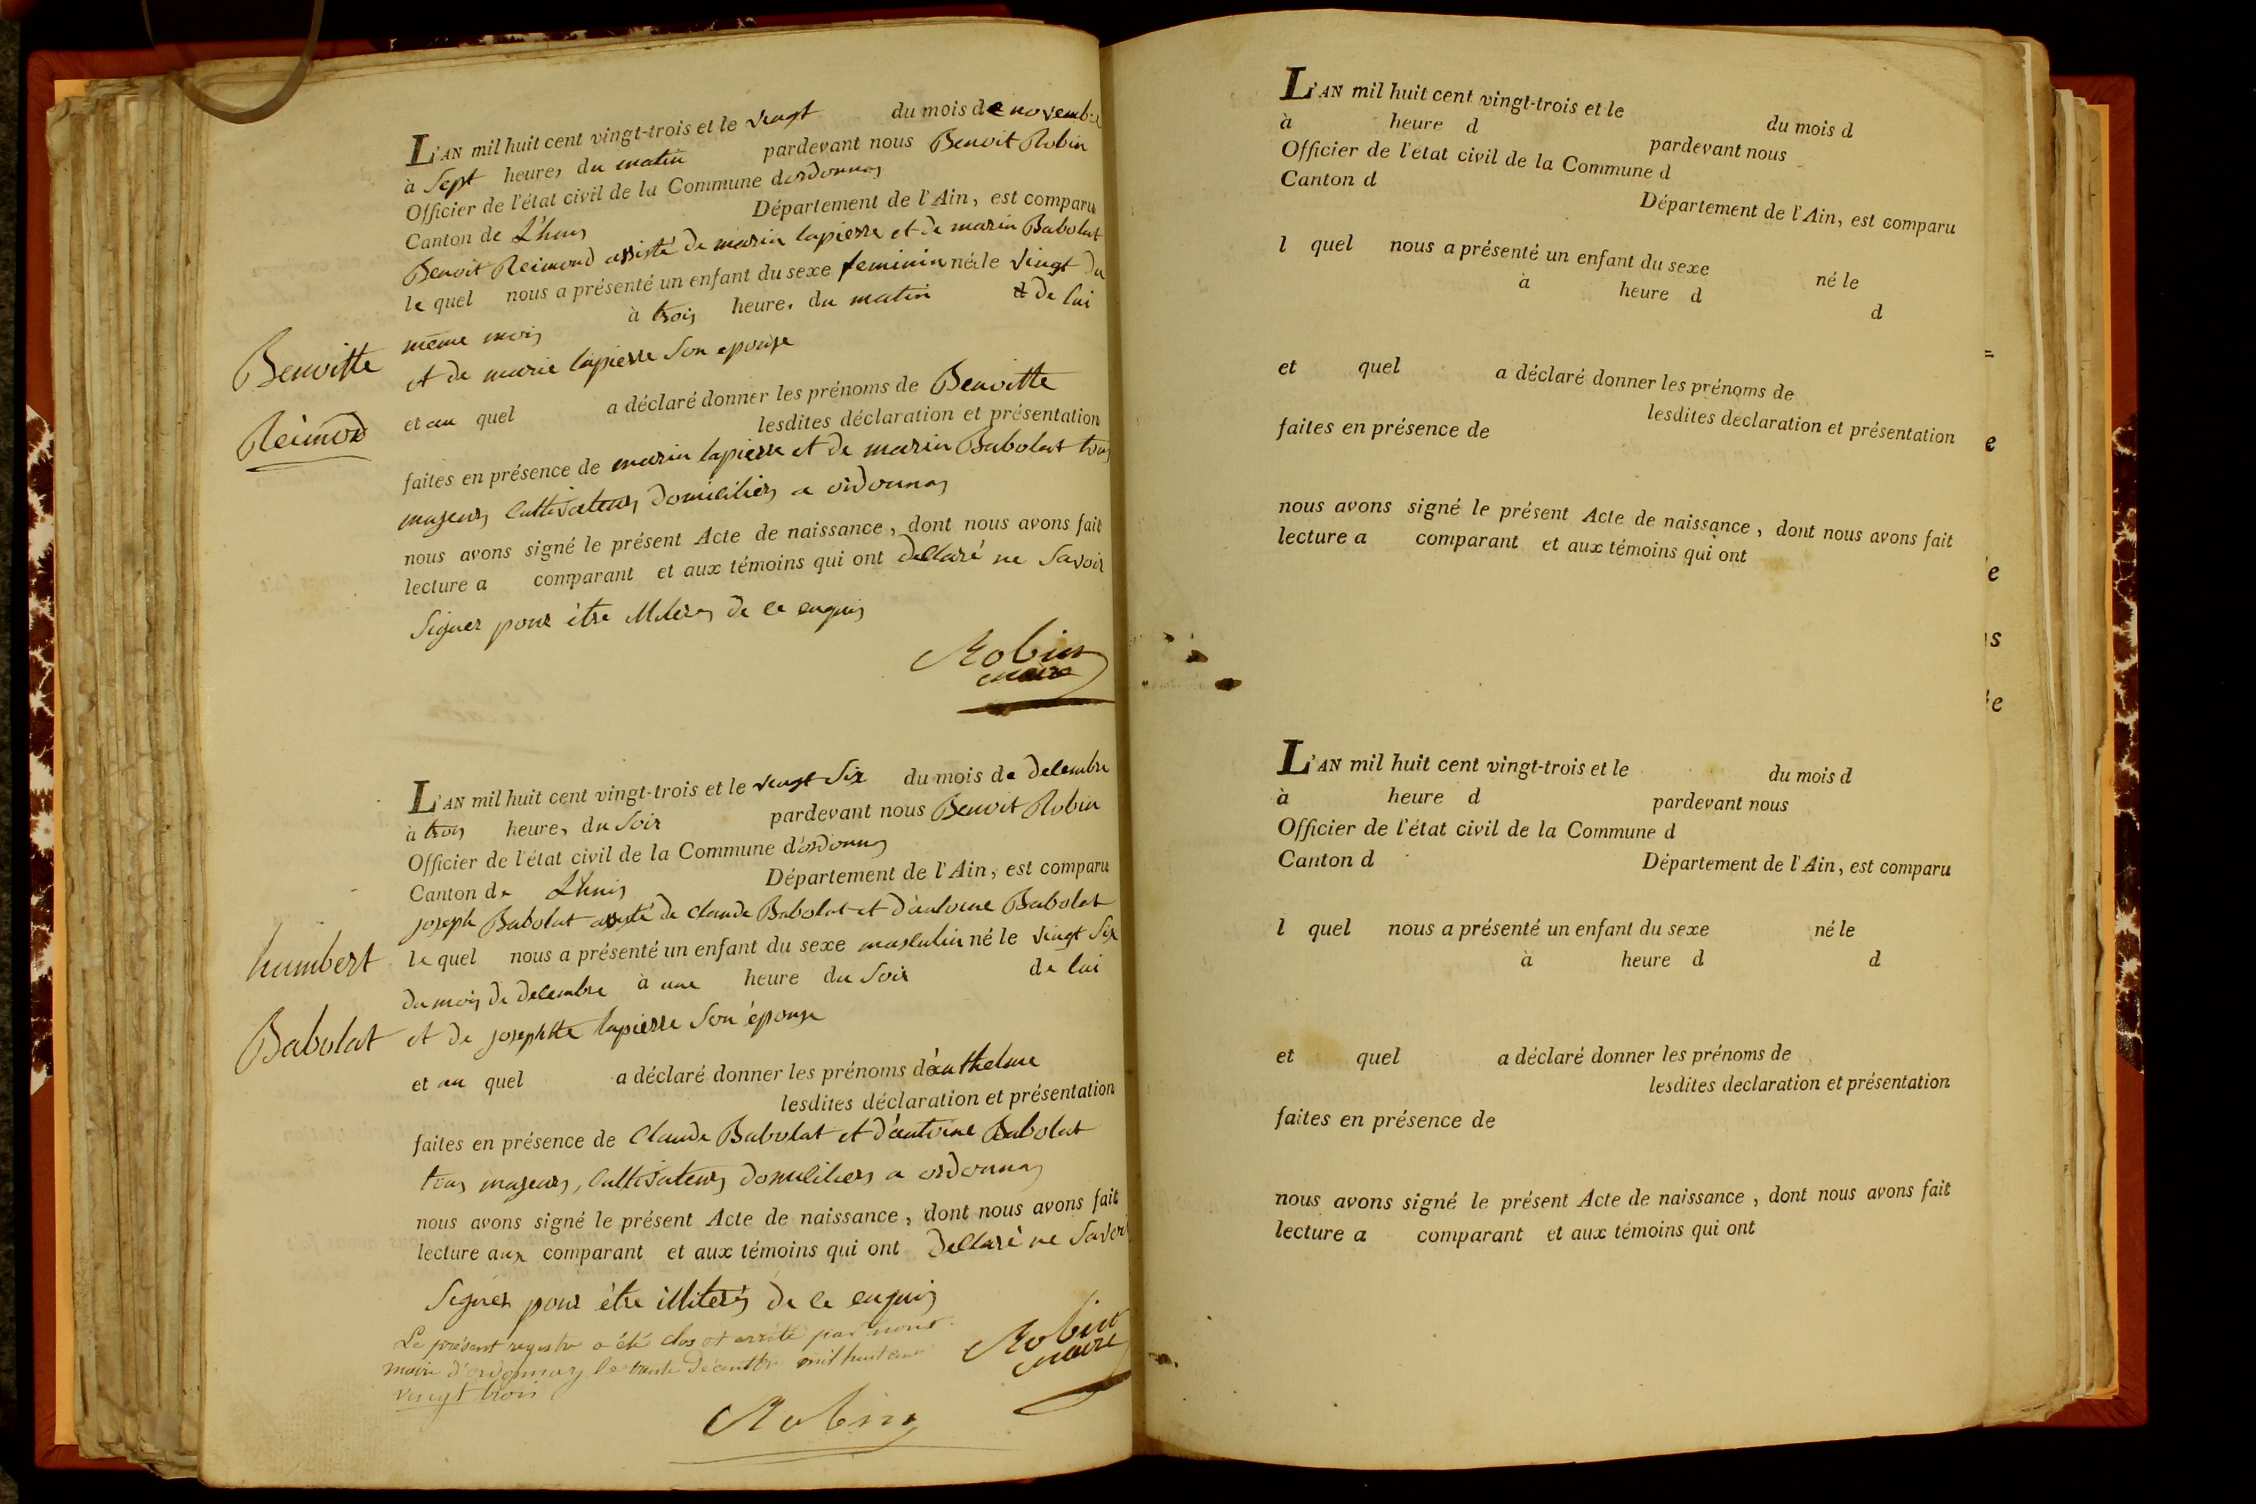 L'AN mil huit cent vingt-trois et le vingt du mois de novembre
à sept heures du matin pardevant nous Benoit Robin
Officier de l'état civil de la Commune dordonnas
Canton de Lhuis Département de l'Ain, est comparu
Benoit Reimond assisté de marin lapierre et de marin Babolat
le quel nous a présenté un enfant du sexe feminin née le vingt du
même mois à trois heures du matin de lui
et de marie lapierre son epouse
Benoitte
Reimond
et au quel a déclaré donner les prénoms de Benoitte
lesdites déclaration et présentation
faites en présence de marin lapierre et de marin Babolat tous
majeurs cultivateurs domiciliés a ordonnas
nous avons signé le présent Acte de naissance, dont nous avons fait
lecture a comparant et aux témoins qui ont declaré ne savoir
signer pour être illiterés de ce enquis
Robin
maire
L'AN mil huit cent vingt-trois et le vingt six du mois de decembre
à trois heures du soir pardevant nous Benoit Robin
Officier de l'état civil de la Commune d'ordonnas
Canton de Lhuis Département de l'Ain, est comparu
joseph Babolat assisté de claude Babolat et d'antoine Babolat
le quel nous a présenté un enfant du sexe masculin né le vingt six
du mois de decembre à une heure du soir de lui
et de josephtte lapierre son épouse
humbert
Babolat
et au quel a déclaré donner les prénoms d'anthelme
lesdites déclaration et présentation
faites en présence de claude Babolat et d'antoine Babolat
tous majeurs, cultivateurs domiciliés a ordonnas
nous avons signé le présent Acte de naissance, dont nous avons fait
lecture aux comparant et aux témoins qui ont declaré ne savoir
signer pour être illiterés de ce enquis
Le présent registre a été clos et arrêté par nous
maire d'ordonnas le trente décembre mil huit cent
vingt trois
Robin
maire
Robin
L'AN mil huit cent vingt-trois et le du mois d
à heure d pardevant nous
Officier de l'état civil de la Commune d
Canton d Département de l'Ain, est comparu
l quel nous a présenté un enfant du sexe né le
à heure d d
et quel a déclaré donner les prénoms de
lesdites déclaration et présentation
faites en présence de
nous avons signé le présent Acte de naissance, dont nous avons fait
lecture a comparant et aux témoins qui ont
L'AN mil huit cent vingt-trois et le du mois d
à heure d pardevant nous
Officier de l'état civil de la Commune d
Canton d Département de l'Ain, est comparu
l quel nous a présenté un enfant du sexe né le
à heure d d
et quel a déclaré donner les prénoms de
lesdites declaration et présentation
faites en présence de
nous avons signé le présent Acte de naissance, dont nous avons fait
lecture a comparant et aux témoins qui ont